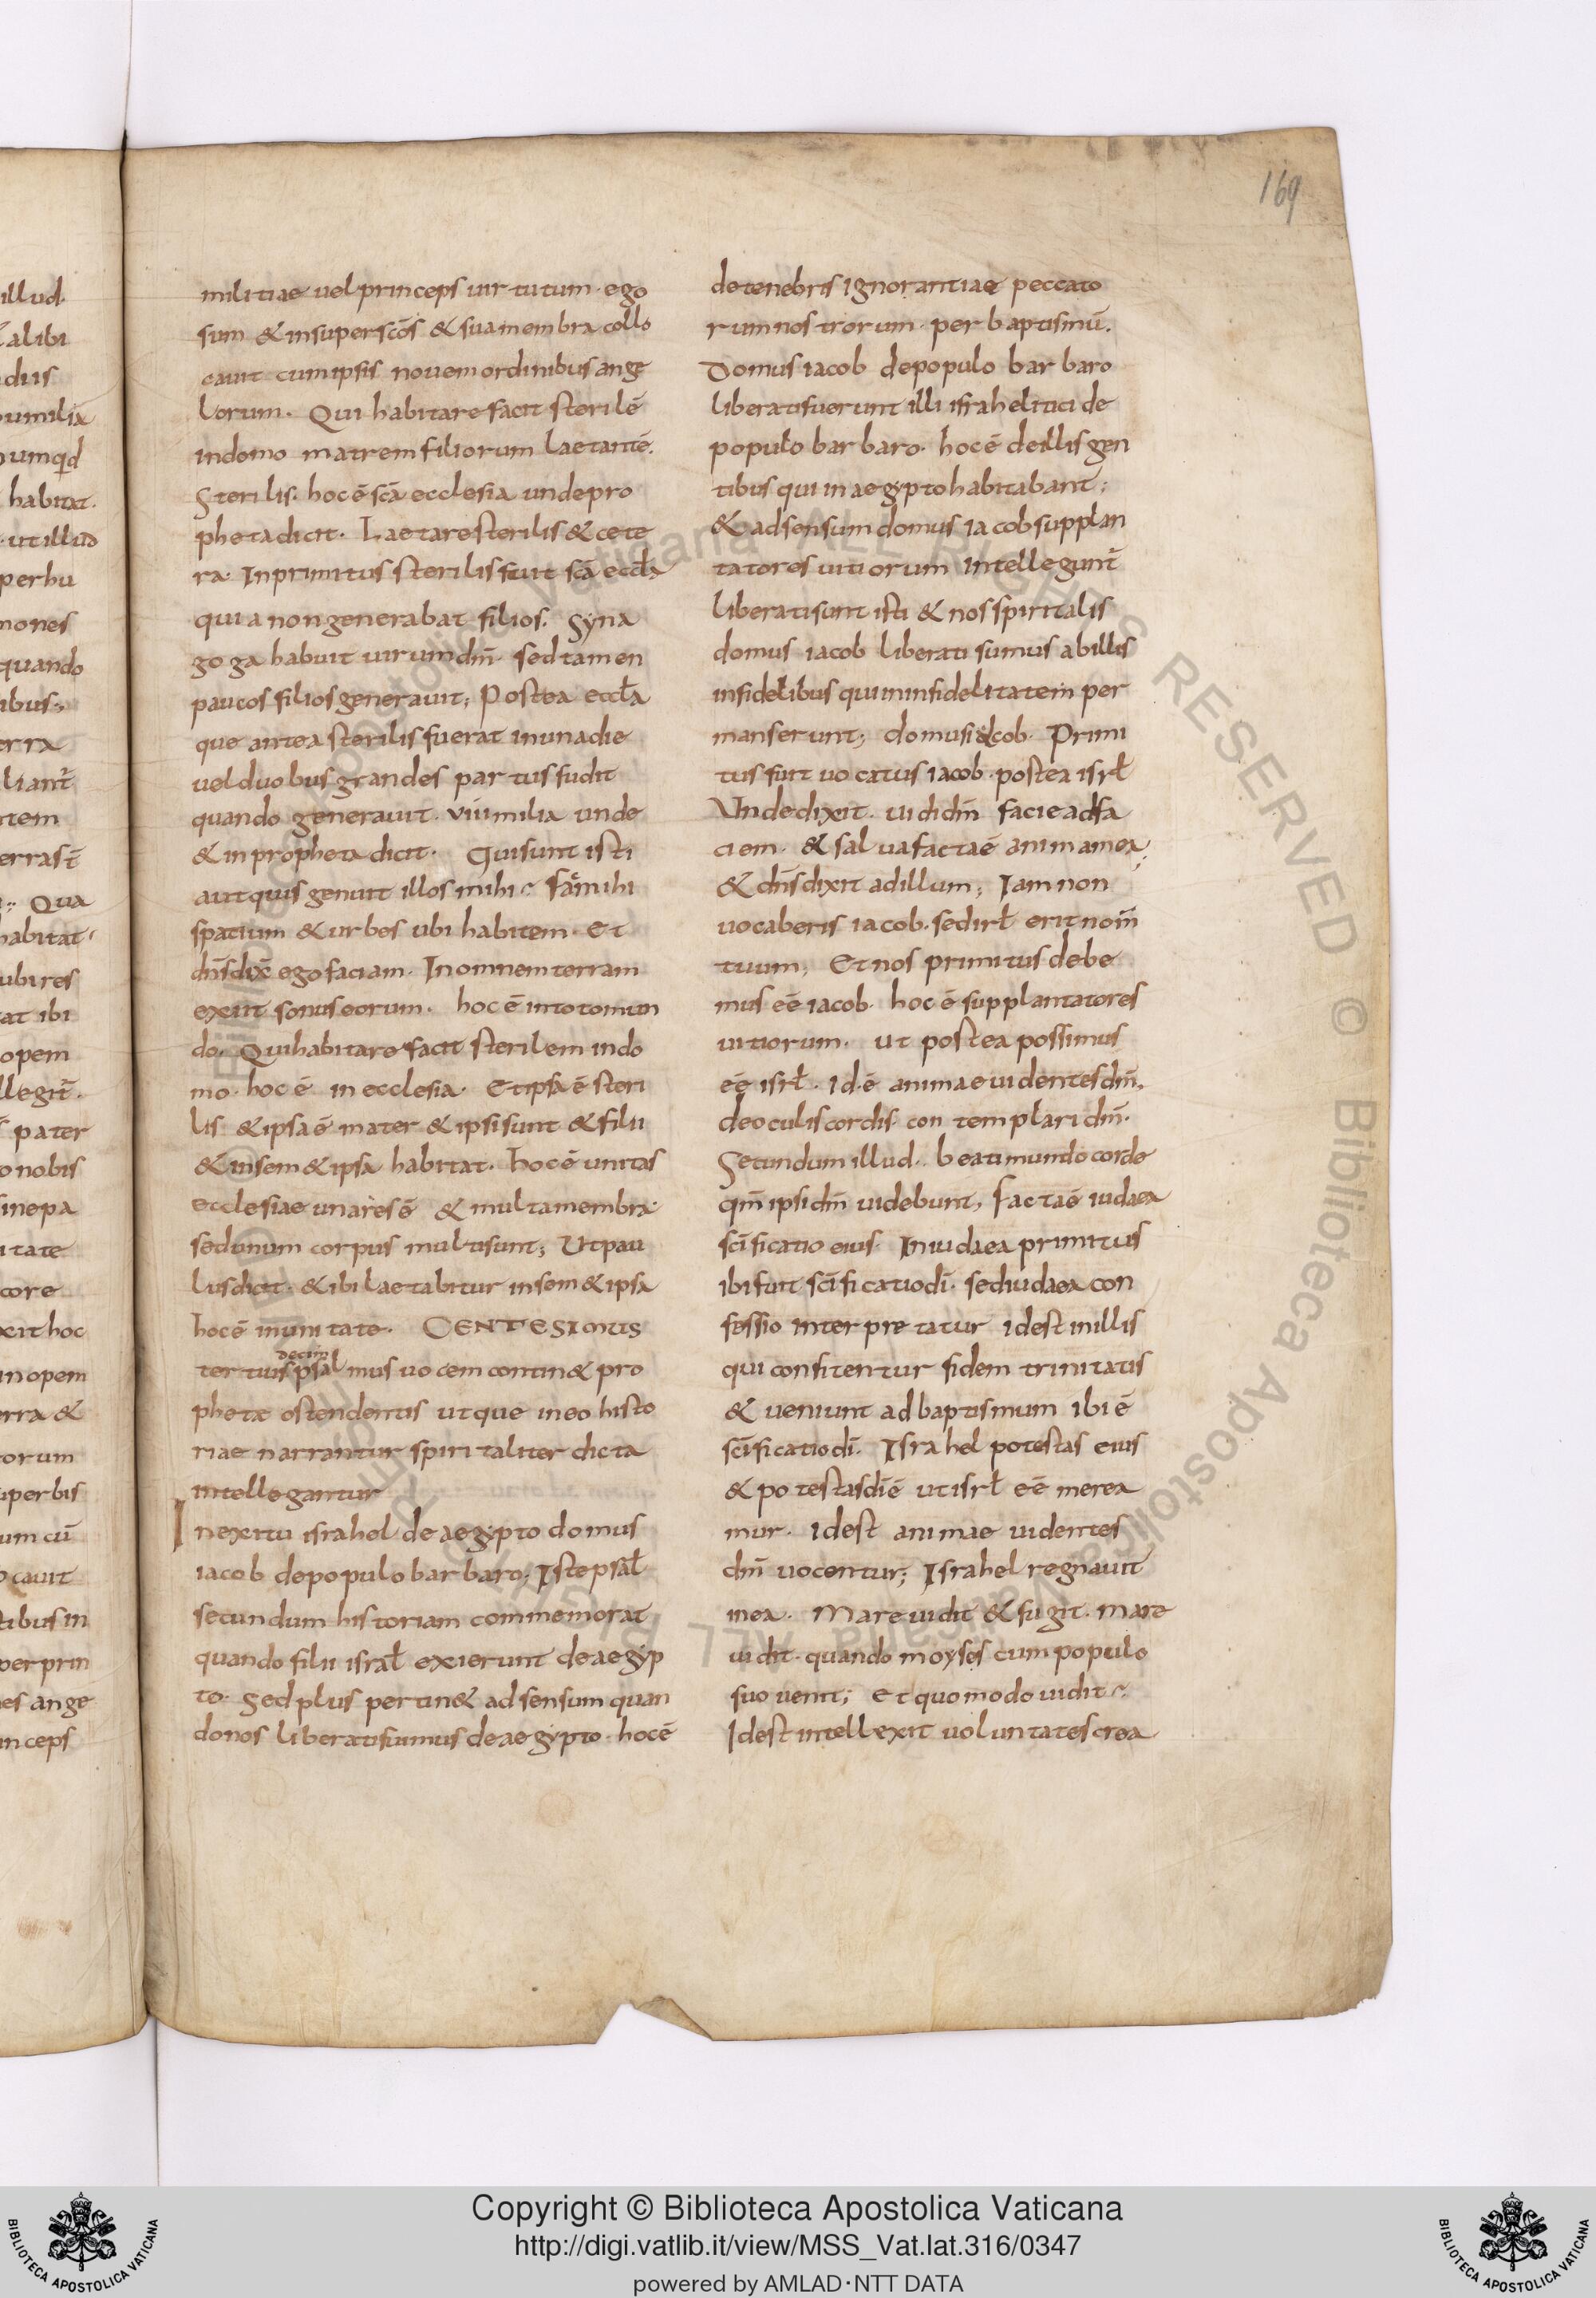 169
militiae uel princeps uirtutum · ego
sum & insuper scōs & sua membra collo
cauit cum ipsis nouem ordinibus ange
lorum · Qui habitare facit sterilē
in domo matrem filiorum laetantē.
Sterilis: hoc ē scā ecclesia unde pro
pheta dicit · Laetare sterilis & cete
ra · In primitus sterilis fuit scā eccła
quia non generabat filios: Syna
goga habuit uirum dm̄ · sed tamen
paucos filios generauit; Postea eccła
que antea sterilis fuerat in una die
uel duobus grandes partus fudit
quando generauit · viii milia unde
& in propheta dicit · Qui sunt isti
aut quis genuit illos mihi · fac mihi
spatium & urbes ubi habitem · Et
dn̄s dix̄ ego faciam · In omnem terram
exiit sonus eorum · hoc ē in toto mun
do · Qui habitare facit sterilem in do
mo · hoc ē in ecclesia · Et ipsa ē steri
lis & ipsa ē mater & ipsi sunt & filii
& in sem&ipsa habitat · hoc ē unitas
ecclesiae una res ē & multa membra
sed unum corpus multi sunt; Ut pau
lus dicit · & ibi laetabitur in sem&ipsa
hoc ē in unitate · CENTESIMUS
decim
tertius psalmus uocem contin& pro
phetæ ostendentis ut que in eo histo
riae narrantur spiritaliter dicta
intellegantur
In exitu israhel de aegypto domus
iacob de populo barbaro; Iste psał
secundum historiam commemorat
quando filii israł exierunt de aegyp
to · Sed plus pertin& ad sensum quan
do nos liberati sumus de aegypto · hoc ē
de tenebris ignorantiae peccato
rum nostrorum · per baptismū.
Domus iacob de populo barbaro
liberati fuerunt illi israhelitici de
populo barbaro · hoc ē de illis gen
tibus qui in aegypto habitabant;
& ad sensum domus iacob supplan
tatores uitiorum intellegunt̄
liberati sunt isti & nos spiritalis
domus iacob liberati sumus ab illis
infidelibus qui in infidelitatem per
manserunt; domus iacob · Primi
tus fuit uocatus iacob · postea isrł
Unde dixit · uidi dm̄ facie ad fa
ciem · & salua facta ē anima mea;
& dn̄s dixit ad illum; Iam non
uocaberis iacob · sed irł erit nom̄
tuum; Et nos primitus debe
mus eē iacob · hoc ē supplantatores
uitiorum · ut postea possimus
eē isrł · id · ē animae uidentes dm̄ ·
de oculis cordis · contemplari dm̄ ·
Secundum illud · beati mundo corde
qm̄ ipsi dm̄ uidebunt, facta ē iudaea
scīficatio eius · In iudaea primitus
ibi fuit scīficatio dī · sed iudaea con
fessio interpretatur idest in illis
qui confitentur fidem trinitatis
& ueniunt ad baptismum ibi ē
scīficatio dī · Israhel potestas eius
& potestas dī ē ut isrł eē merea
mur · idest animae uidentes
dm̄ uocentur; Israhel regnauit
in ea · Mare uidit & fugit · mare
uidit · quando moyses cum populo
suo uenit; et quomodo uidit
Idest intellexit uoluntates crea
Copyright © Biblioteca Apostolica Vaticana
http://digi.vatlib.it/view/MSS_Vat.lat.316/0347
powered by AMLAD·NTT DATA